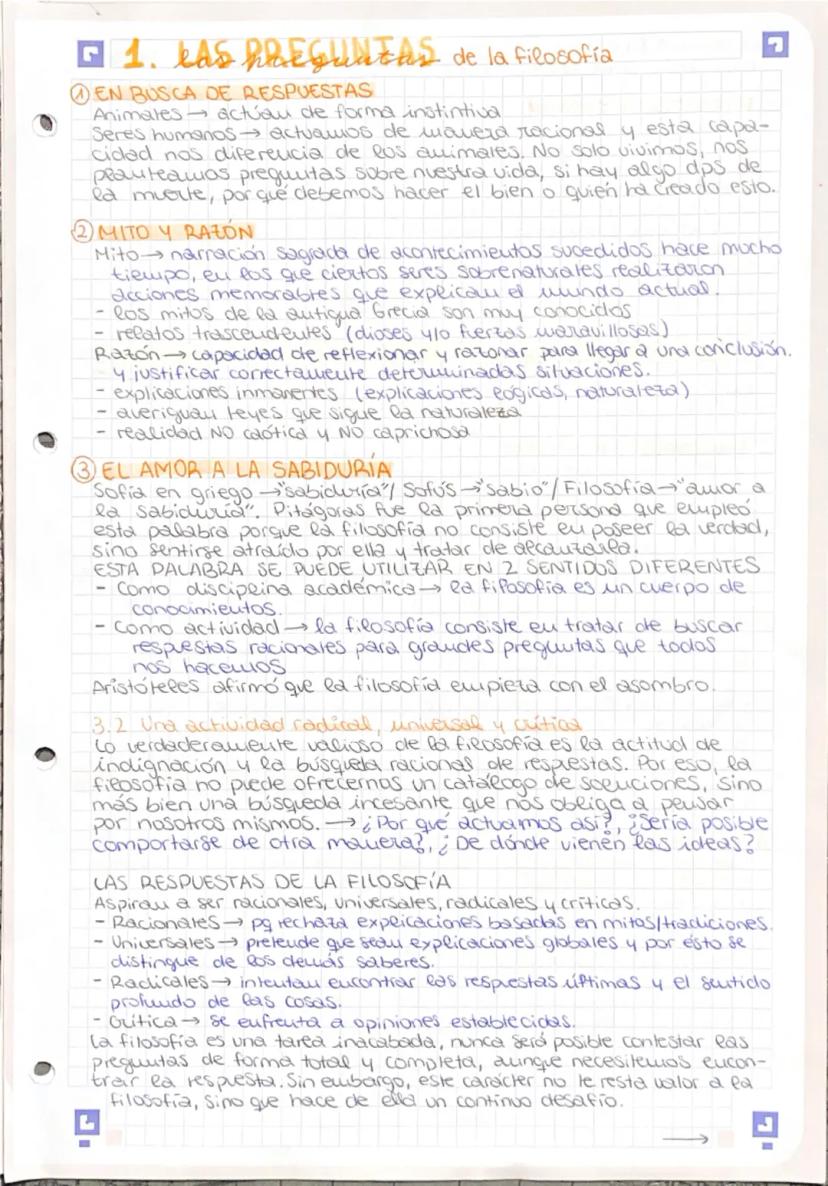 1. LAS PREGUNTAS las preguntas de la filosofía
① EN BUSCA DE RESPUESTAS
Animales → actúan de forma instintiva
Seres humanos → actuamos de manera racional y esta capa-
cidad nos diferencia de los animales. No solo vivimos, nos
planteamos preguntas sobre nuestra vida, si hay algo dps de
la muerte, por qué debemos hacer el bien o quién ha creado esto.
② MITO Y RAZÓN
Mito → narración sagrada de acontecimientos sucedidos hace mucho
tiempo, en los que ciertos seres sobrenaturales realizaron
acciones memorables que explican el mundo actual.
- los mitos de la antigua Grecia son muy conocidos
- relatos trascendentes (dioses y/o fuerzas maravillosas)
Razón → capacidad de reflexionar y razonar para llegar a una conclusión.
y justificar correctamente determinadas situaciones.
- explicaciones inmanentes (explicaciones lógicas, naturaleza)
- averiguan leyes que sigue la naturaleza
- realidad NO caótica y NO caprichosa
③ EL AMOR A LA SABIDURÍA
Sofía en griego → "sabiduría" / Sofós → "sabio" / Filosofía → "amor a
la sabiduría". Pitágoras fue la primera persona que empleó
esta palabra porque la filosofía no consiste en poseer la verdad,
sino sentirse atraído por ella y tratar de alcanzarla.
ESTA PALABRA SE PUEDE UTILIZAR EN 2 SENTIDOS DIFERENTES
- Como disciplina académica → la filosofía es un cuerpo de
conocimientos.
- Como actividad → la filosofía consiste en tratar de buscar
respuestas racionales para grandes preguntas que todos
nos hacemos
Aristóteles afirmó que la filosofía empieza con el asombro.
3.2 Una actividad radical, universal y crítica
Lo verdaderamente valioso de la filosofía es la actitud de
indignación y la búsqueda racional de respuestas. Por eso, la
filosofía no puede ofrecernos un catálogo de soluciones, sino
más bien una búsqueda incesante que nos obliga a pensar
por nosotros mismos. → ¿Por qué actuamos así?, ¿Sería posible
comportarse de otra manera?, ¿De dónde vienen las ideas?
LAS RESPUESTAS DE LA FILOSOFÍA
Aspiran a ser racionales, universales, radicales y críticas.
- Racionales → pq rechaza explicaciones basadas en mitos/tradiciones.
- Universales → pretende que sean explicaciones globales y por esto se
distingue de los demás saberes.
- Radicales → intentan encontrar las respuestas últimas y el sentido
profundo de las cosas.
- Crítica → se enfrenta a opiniones establecidas.
La filosofía es una tarea inacabada, nunca será posible contestar las
preguntas de forma total y completa, aunque necesitemos encon-
trar la respuesta. Sin embargo, este carácter no le resta valor a la
filosofía, sino que hace de ella un continuo desafío.
→